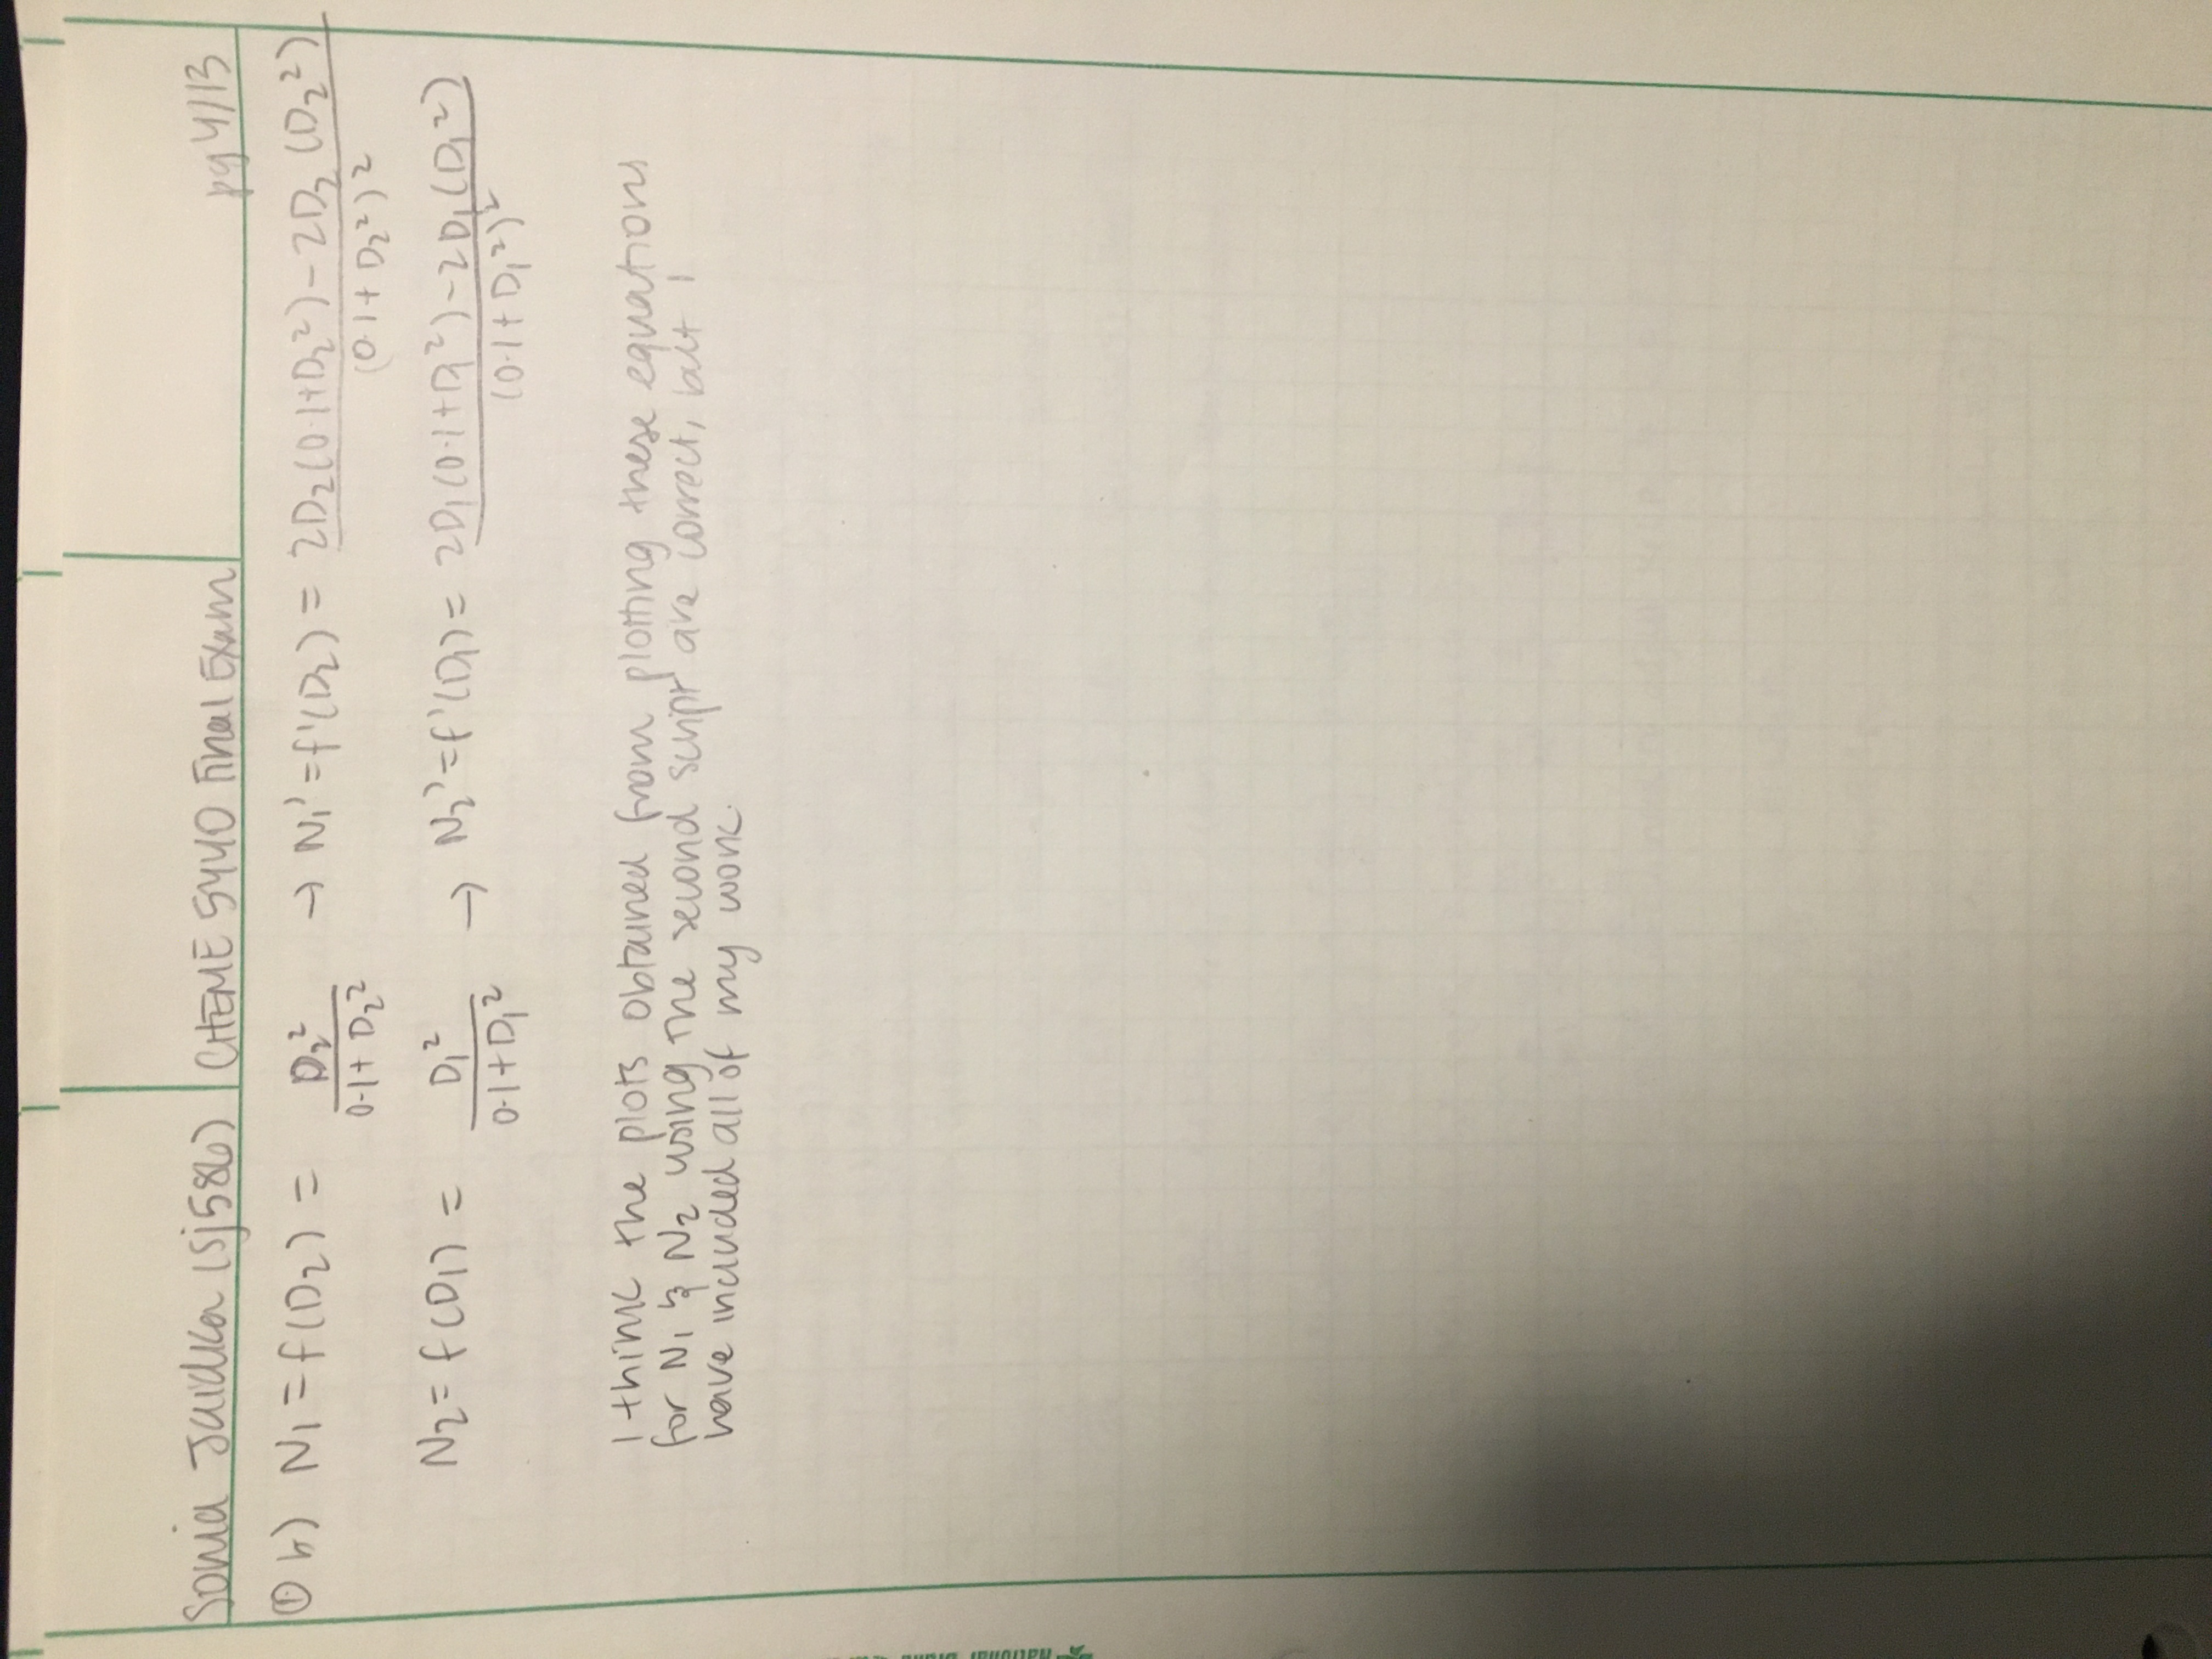 Sonia Jaidka (sj586) CHEME 5440 Final Exam pg 4/13
① b) N₁ = f(D₂) = D₂² / (0.1 + D₂²) → N₁' = f'(D₂) = (2D₂(0.1+D₂²) - 2D₂(D₂²)) / (0.1+D₂²)²
N₂ = f(D₁) = D₁² / (0.1+D₁²) → N₂' = f'(D₁) = (2D₁(0.1+D₁²) - 2D₁(D₁²)) / (0.1+D₁²)²
I think the plots obtained from plotting these equations
for N₁ & N₂ using the second script are correct, but I
have included all of my work.